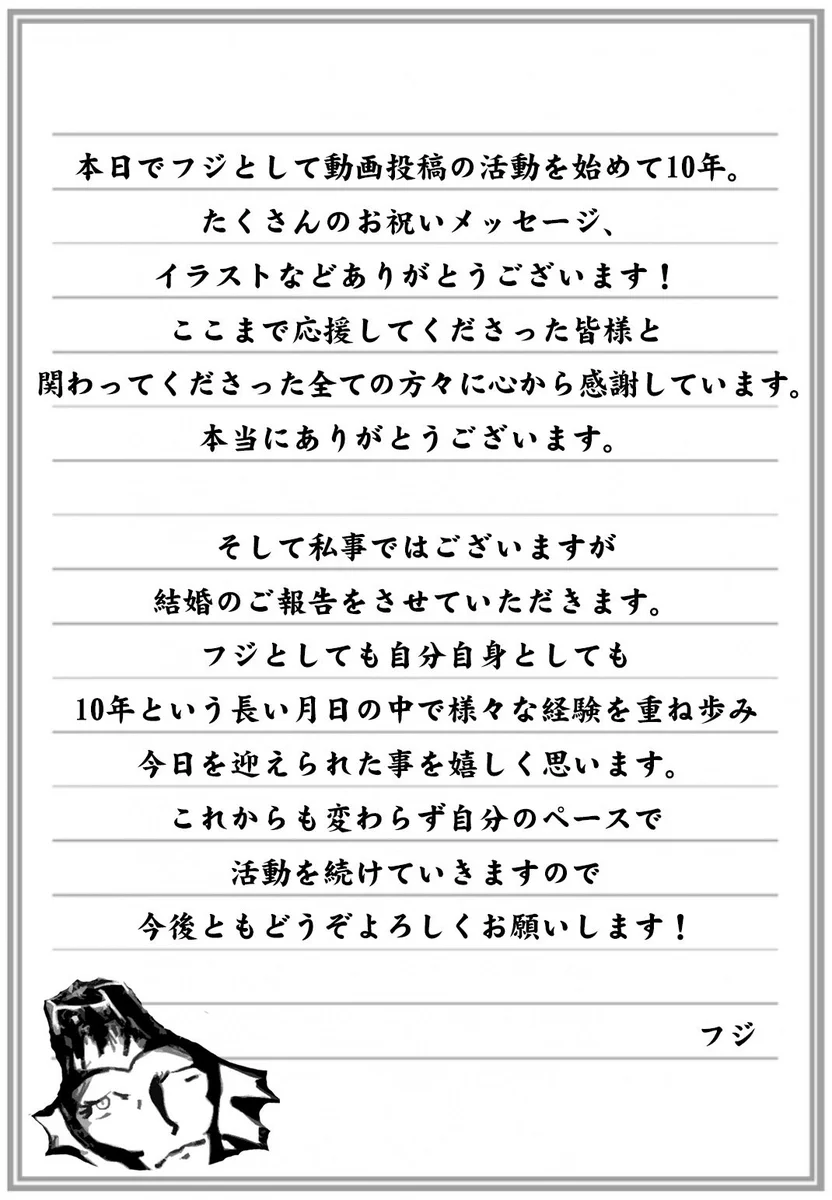 本日でフジとして動画投稿の活動を始めて10年。
たくさんのお祝いメッセージ、
イラストなどありがとうございます！
ここまで応援してくださった皆様と
関わってくださった全ての方々に心から感謝しています。
本当にありがとうございます。
そして私事ではございますが
結婚のご報告をさせていただきます。
フジとしても自分自身としても
10年という長い月日の中で様々な経験を重ね歩み
今日を迎えられた事を嬉しく思います。
これからも変わらず自分のペースで
活動を続けていきますので
今後ともどうぞよろしくお願いします！
フジ